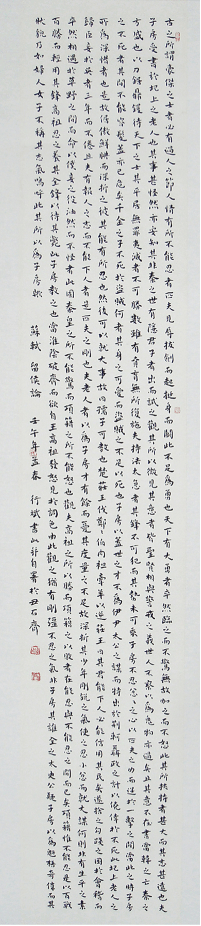 古之所謂豪傑之士者必有過人之節人情有所不能忍者匹夫見辱拔劍而起挺身而鬥此不足為勇也天下有大勇者卒然臨之而不驚無故加之而不怒此其所挾持者甚大而其志甚遠也夫
子房受書於圯上之老人也其事甚怪然亦安知其非秦之世有隱君子者出而試之觀其所以微見其意者皆聖賢相與警戒之義世人不察以為鬼物亦已過矣且其意不在書當韓之亡秦之
方盛也以刀鋸鼎鑊待天下之士其平居無罪夷滅者不可勝數雖有賁育無所復施夫持法太急者其鋒不可犯而其勢未可乘子房不忍忿忿之心以匹夫之力而逞於一擊之間當此之時子房
之不死者其間不能容髮蓋亦已危矣千金之子不死於盜賊何者其身之可愛而盜賊之不足以死也子房以蓋世之才不為伊尹太公之謀而特出於荊軻聶政之計以僥倖於不死此圯上老人之
所為深惜者也是故倨傲鮮腆而深折之彼其能有所忍也然後可以就大事故曰孺子可教也楚莊王伐鄭鄭伯肉袒牽羊以逆莊王曰其君能下人必能信用其民矣遂捨之勾踐之困於會稽而
歸臣妾於吳者三年而不倦且夫有報人之志而不能下人者是匹夫之剛也夫老人者以為子房才有餘而憂其度量之不足故深折其少年剛銳之氣使之忍小忿而就大謀何則非有生平之素
卒然相遇於草野之間而命以僕妾之役油然而不怪者此固秦皇之所不能驚而項籍之所不能怒也觀夫高祖之所以勝而項籍之所以敗者在能忍與不能忍之間而已矣項籍惟不能忍是以百戰
百勝而輕用其鋒高祖忍之養其全鋒以待其斃此子房教之也當淮陰破齊而欲自王高祖發怒見於詞色由此觀之猶有剛強不忍之氣非子房其誰全之太史公疑子房以為魁梧奇偉而其
狀貌乃如婦人女子不稱其志氣嗚呼此其所以為子房歟
蘇軾 留侯論 壬午年孟春